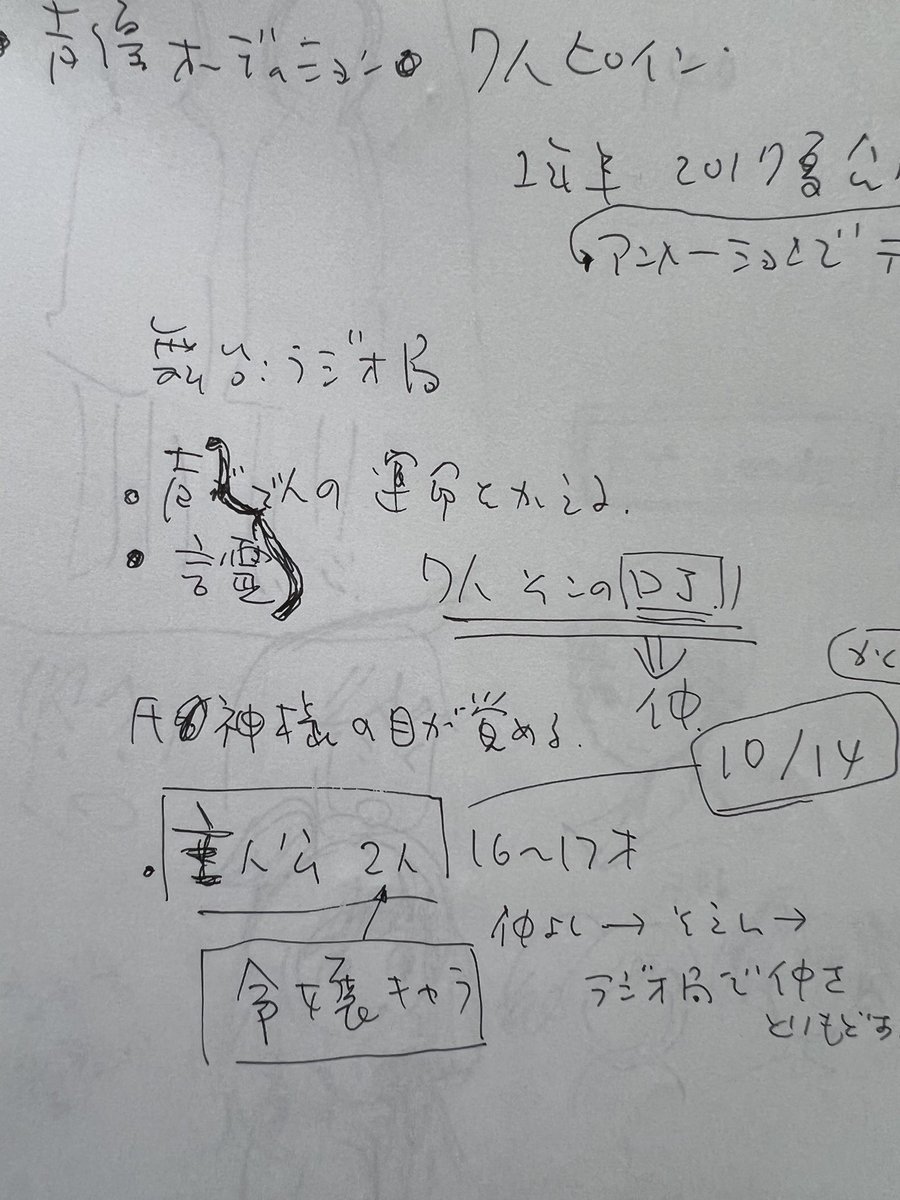 声優オーディション 7人ヒロイン
1年半 2017夏公
アニメーションとビデ
舞台:ラジオ局
声で人の運命をかえる.
言霊
7人 そこのDJ
仲
神様の目が覚める.
10/14
主人公 2人 16〜17才
仲よし→そえん→
令嬢キャラ
ラジオ局で仲を
とりもどす